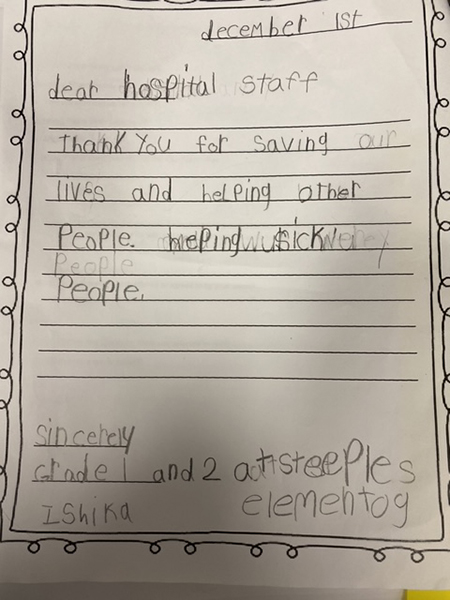 december 1st
dear hospital staff
thank you for saving our
lives and helping other
People. helping sick
People
People.
sincerely
Grade 1 and 2 at steeples
elementog
IShika